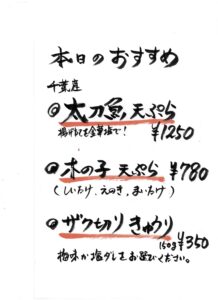 本日のおすすめ
千葉産
◎太刀魚天ぷら
揚げたてを全単塩で!
¥1250
◎木の子天ぷら ¥780
(しいたけ、えのき、まいたけ)
◎ザク切りきゅうり
150g ¥350
梅味か塩ダレをお選びください。